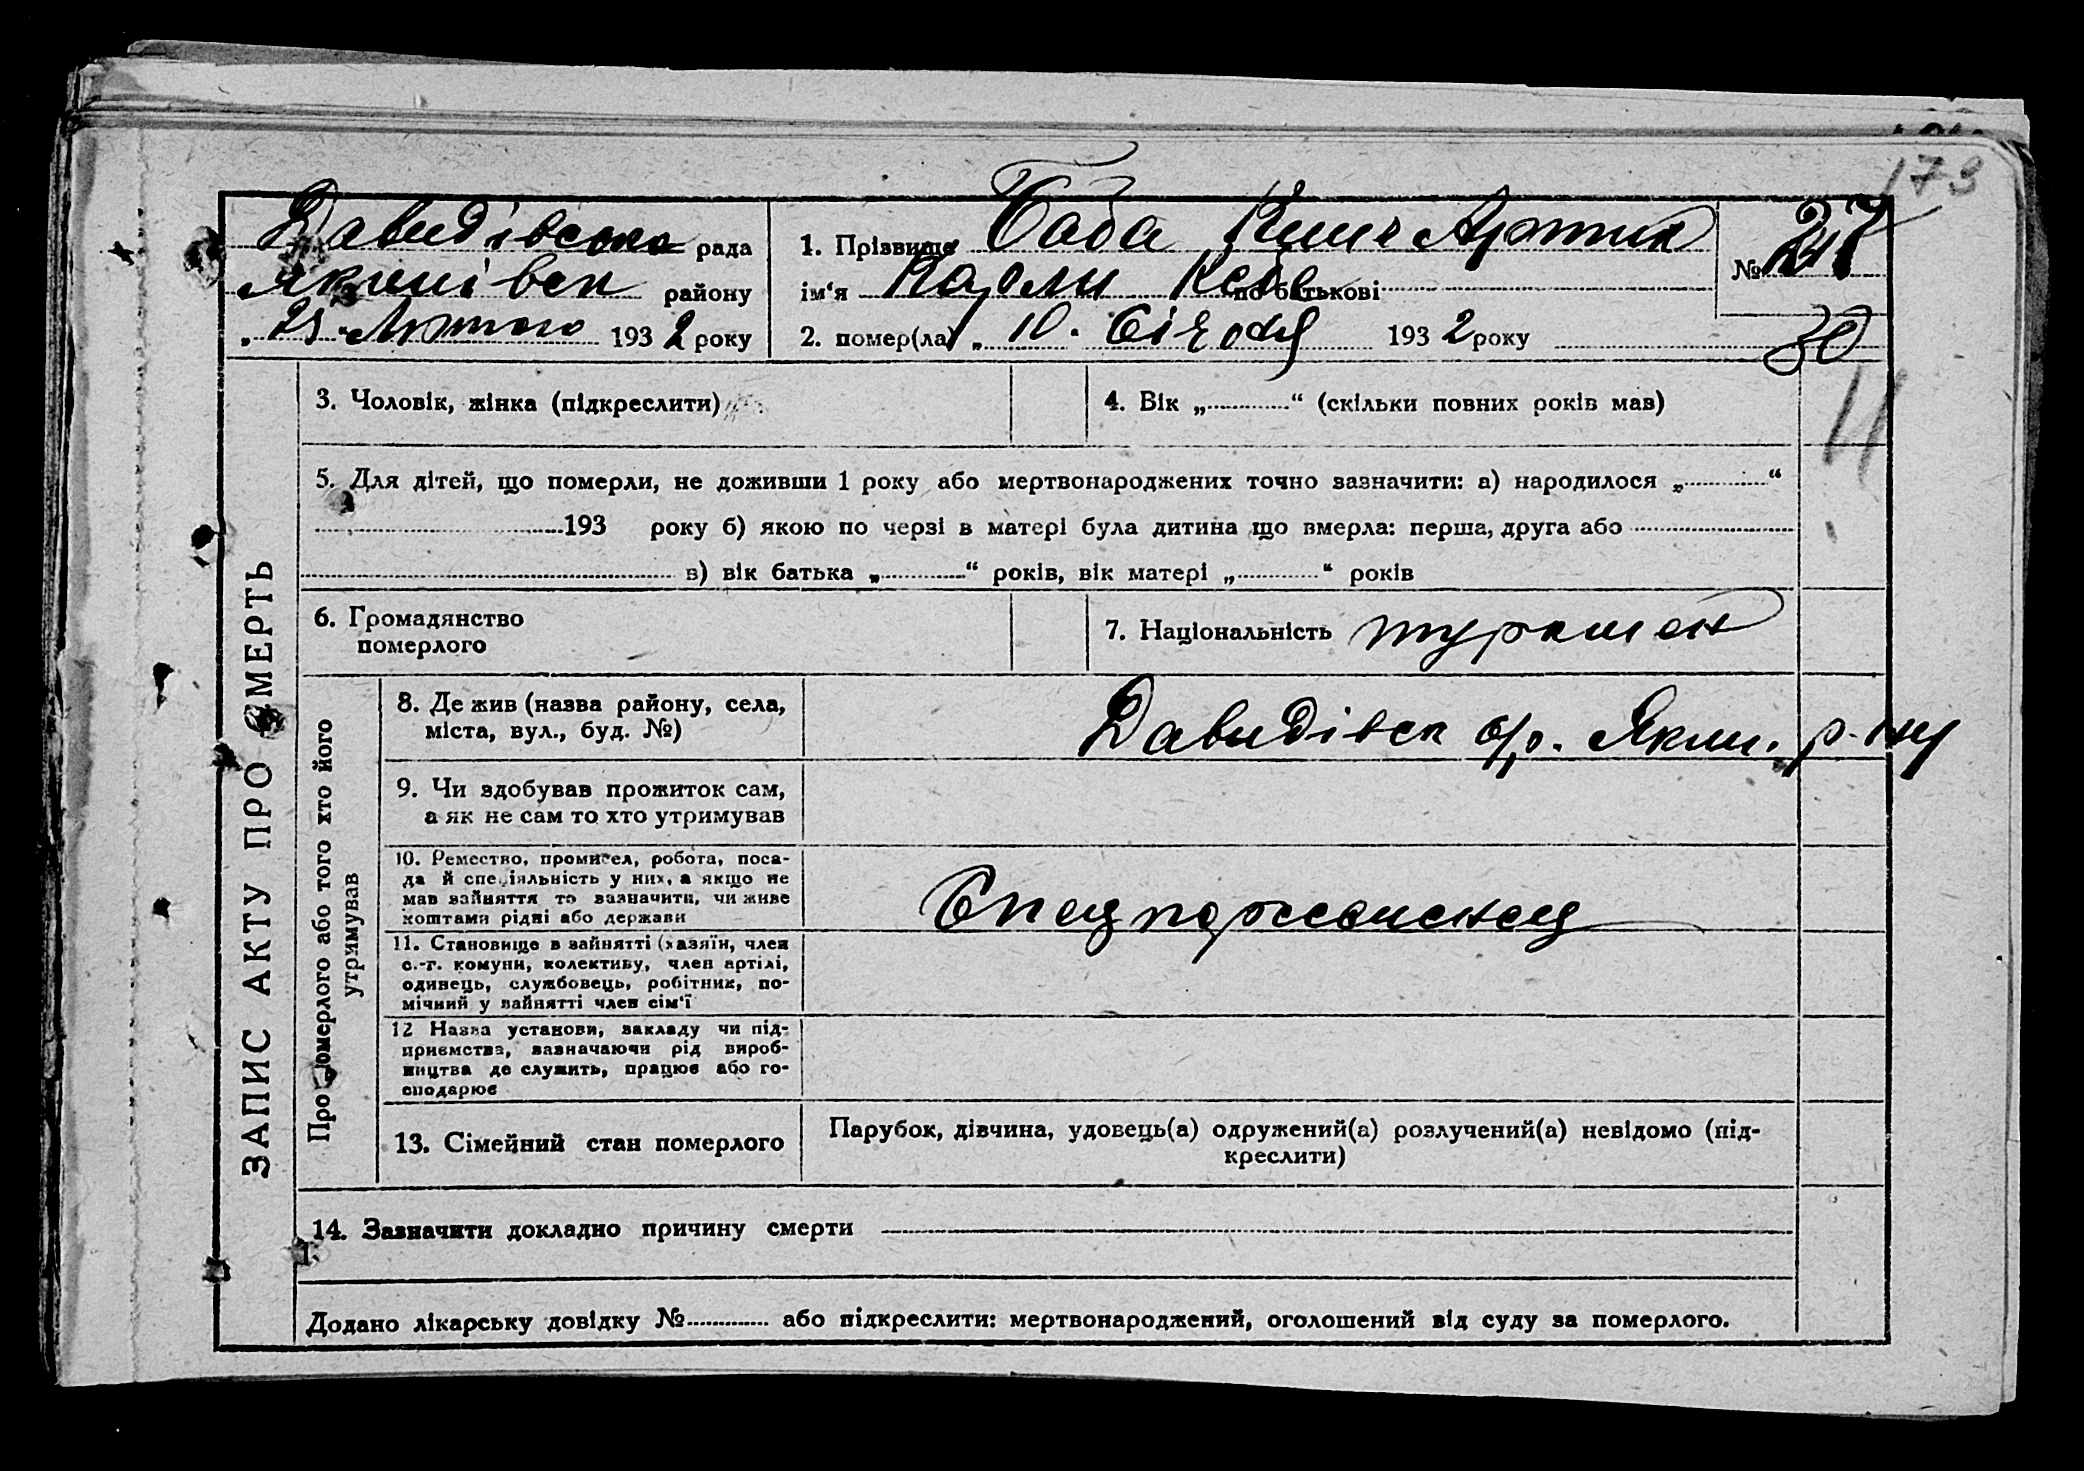 173
Давидівська рада
Якимівськ району
„23" Лютого 1932 року
1. Прізвище Баба Клич Артык
ім'я по батькові
2. помер(ла) „10. Січодня 1932 року
№ 27
30
3. Чоловік, жінка (підкреслити)
4. Вік „............“ (скільки повних років мав)
11
5. Для дітей, що померли, не доживши 1 року або мертвонароджених точно зазначити: а) народилося „............“
193 року б) якою по черзі в матері була дитина що вмерла: перша, друга або
в) вік батька „............“ років, вік матері „............“ років
6. Громадянство
померлого
7. Національність туркмен
ЗАПИС АКТУ ПРО СМЕРТЬ
Про померлого або того хто його
утримував
8. Де жив (назва району, села,
міста, вул., буд. №)
Давидівськ с/р. Яким. р-ну
9. Чи здобував прожиток сам,
а як не сам то хто утримував
10. Ремество, промисел, робота, поса-
да й спеціяльність у них, а якщо не
мав зайняття то зазначити, чи живе
коштами рідні або держави
Спецпереселенец
11. Становище в зайнятті (хазяїн, член
с.-г. комуни, колективу, член артілі,
одинець, службовець, робітник, по-
мічний у зайнятті член сім'ї
12 Назва установи, закладу чи під-
приємства, зазначаючи рід вироб-
ництва де служить, працює або го-
сподарює
13. Сімейний стан померлого
Парубок, дівчина, удовець(а) одружений(а) розлучений(а) невідомо (під-
креслити)
14. Зазначити докладно причину смерти
Додано лікарську довідку №............ або підкреслити: мертвонароджений, оголошений від суду за померлого.